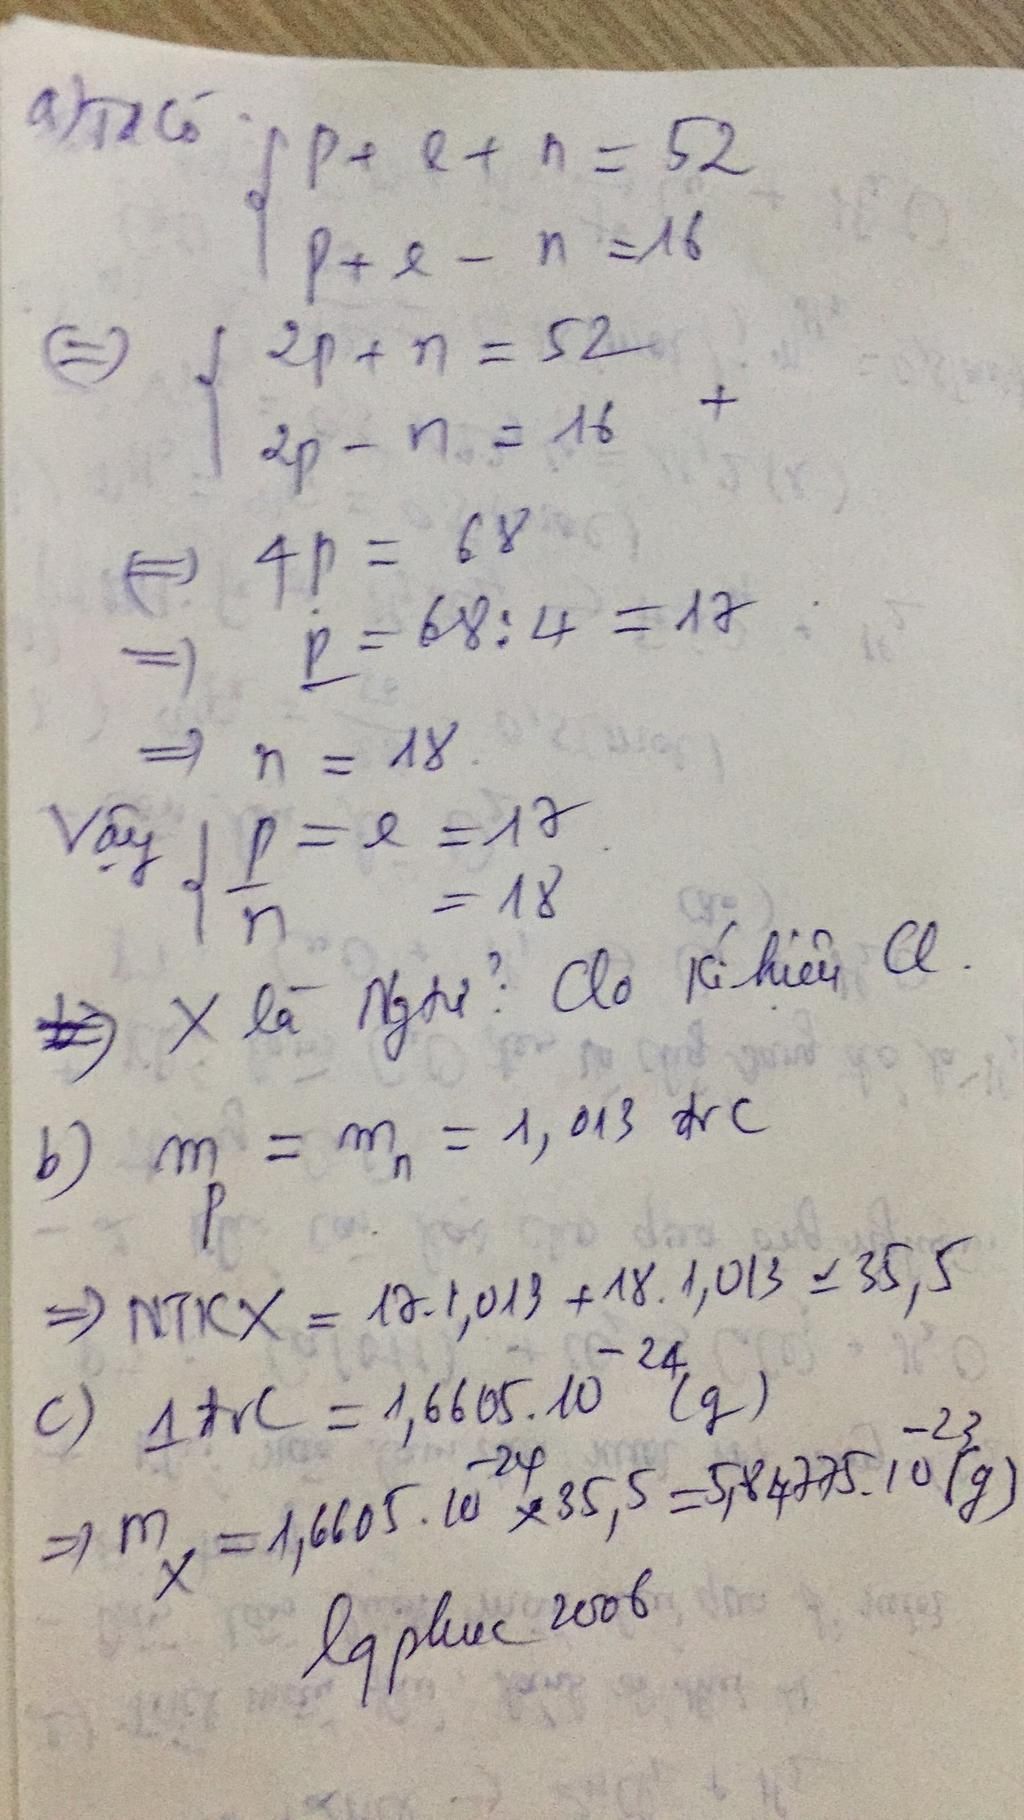 a) Ta có:
p + e + n = 52
p + e - n = 16
(=) 2p + n = 52
2p - n = 16 +
(=) 4p = 68
=) p = 68 : 4 = 17
=> n = 18
Vậy p = e = 17
n = 18
=) X là Ngtử: Clo Kí hiệu Cl.
b) mp = mn = 1,013 đvC
=) NTKX = 17.1,013 + 18.1,013 = 35,5
c) 1 đvC = 1,6605.10^-24 (g)
=> mX = 1,6605.10^-24 x 35,5 = 5,84775.10^-23 (g)
lqphuc2006